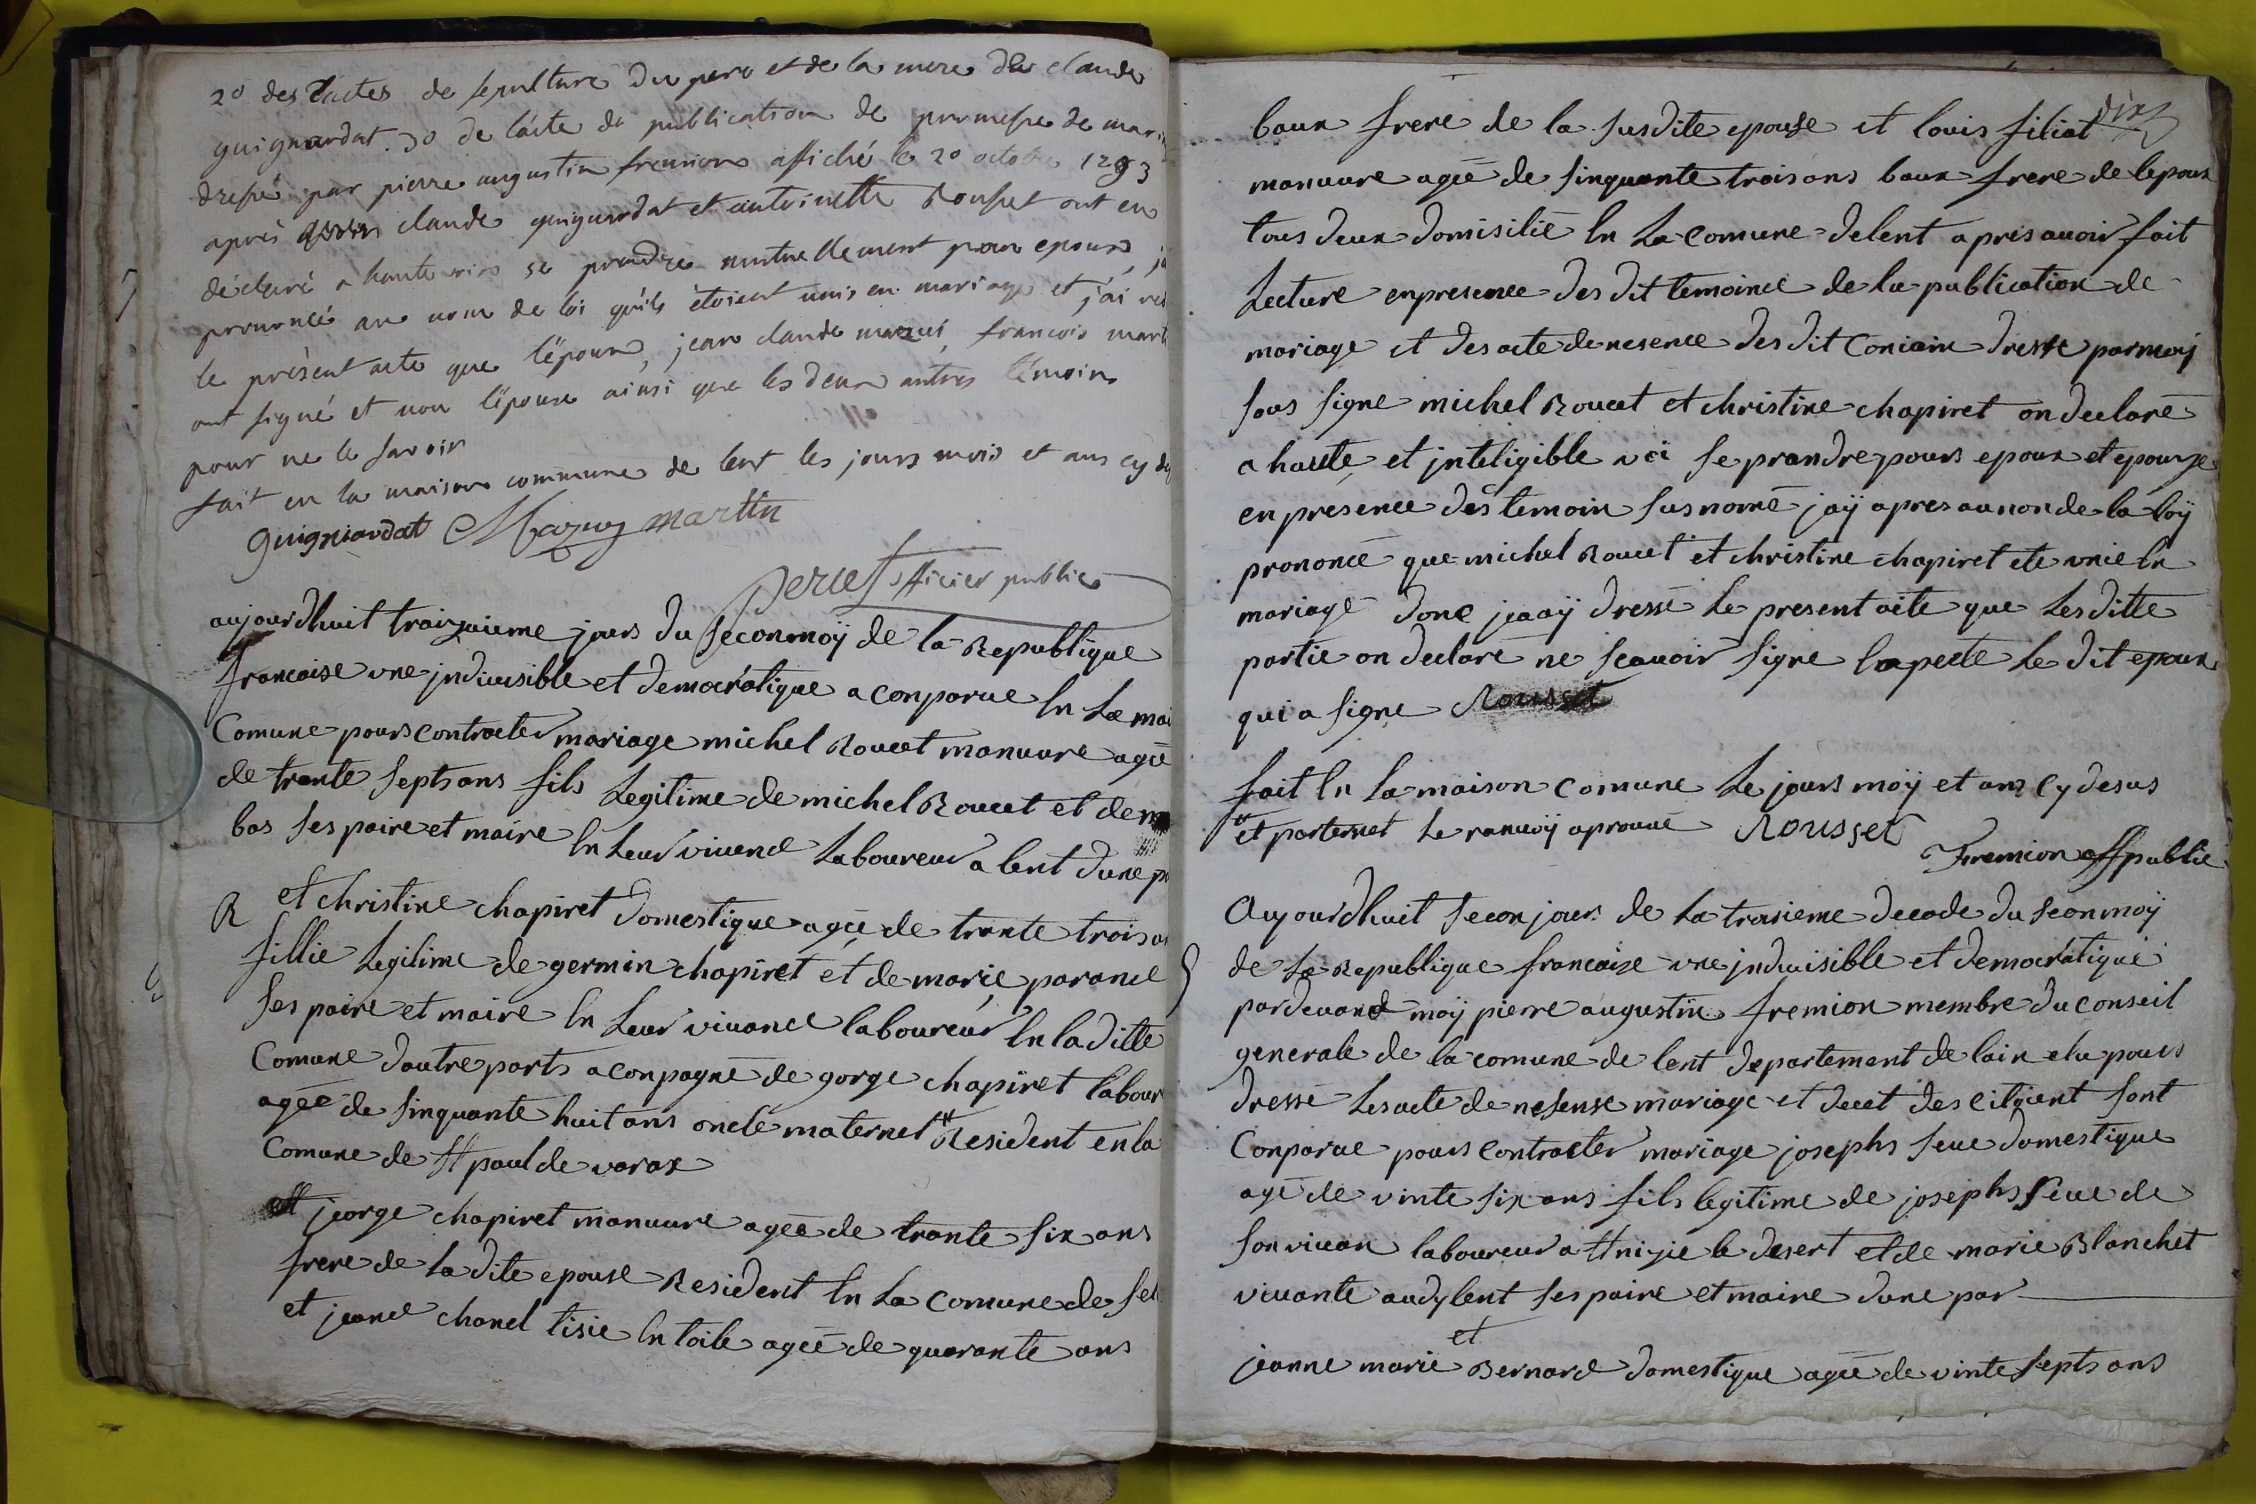 2o des actes de sepulture du pere et de la mere de claude
guignardat. 3o de l'acte de publication de promesse de mar
dressé par pierre augustin fremion affiché le 20 octobre 1793
après claude guignardat et antoinette Rousset ont eu
déclaré a haute voix se prendre mutuellement pour epoux, j'ai
prononcé au nom de loi qu'ils étoient unis en mariage et j'ai
le présent acte que l'époux, jean claude mazui, francois mart
ont signé et non l'épouse ainsi que les deux autres témoins
pour ne le savoir
fait en la maison commune de lent les jours mois et ans cy
guigniardat Mazuy martin
perret officier public
aujourdhuit traizaieme jours du seconmoÿ de la Republique
francaise une jndiuisible et democratique a conparue en La mai
Comune pours contracter mariage michel Roucet manuure ageé
de trante septs ans fils Legitime de michel Roucet et de
bas ses paire et maire en Leur viuend Laboureur a lent dune p
R et christine chapiret domestique ageé de trante trois an
fillie Legitime de germin chapiret et de marie parand
ses paire et maire en Leur viuand laboureur en la ditte
Comune dautre parts a conpagné de gorge chapiret labour
ageé de sinquante huit ans oncle maternel # Resident en la
Comune de st paul de varax
et jeorge chapiret manuure ageé de trante six ans
frere de La dite epouse Resident en La comune de
et jeand chanel tisie en toile ageé de quarante ans
dix
baux frere de la susdite epouse et louis filiat
manuure ageé de sinquante trois ans baux frere de lepoux
tous deux domisilié en La comune delent apres auoir fait
Lecture enpresence des dit temoince de la publication de
mariage et des acte de nesence des dit Conioin dresse parmoy
sous signe michel Roucet et christine chapiret on declaré
a haute et jnteligible voi se prandre pours epoux et epouze
en presence des temoin susnomé jaÿ apres au non de la loÿ
prononcé que michel Roucet et christine chapiret ete unie en
mariage donc jeaaÿ dressé Le present acte que Les ditte
partie on declaré ne scauoir signe Le dit epoux
qui a signe Rousset
fait en La maison Comune Le jours moÿ et ans Cy desus
# et paternet Le ranuoÿ aprouué Rousset
Fremion off public
Aujourdhuit secon jours de La troisieme decade du seconmoÿ
de La Republique francaize une jndiuisible et democratique
pardeuand moÿ pierre augustin fremion membre du conseil
generale de la comune de lent departement de lain elu pours
dressé Les acte de nesense mariage et decet des citoient sont
Conparue pours contracter mariage josephs seue domestique
agé de vinte six ans fils legitime de josephs seue de
son viuan laboureur a st nizié le desert et de marie Blanchet
viuante audylent ses paire et maire dune par
et
jeanne marie Bernard domestique ageé de vinte septs ans